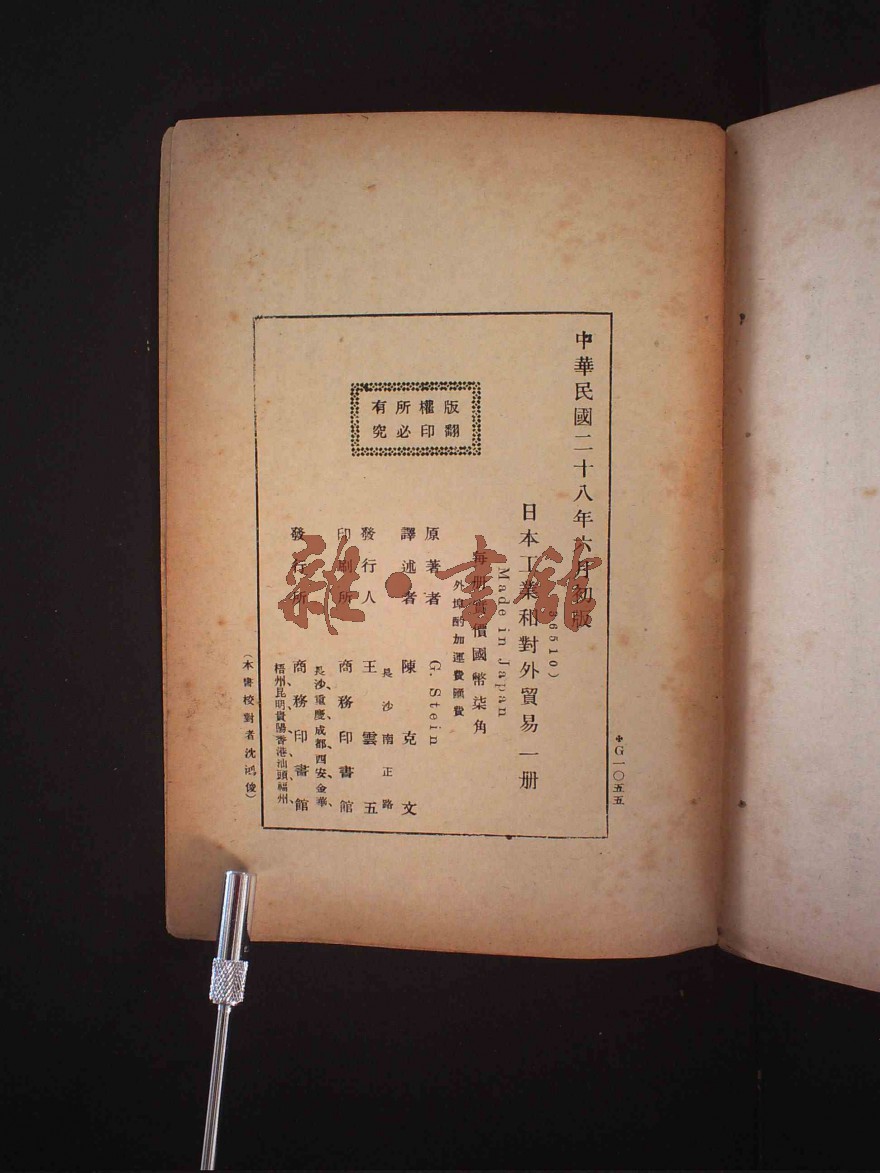 中華民國二十八年六月初版
36510)
日本工業和對外貿易一册
Made in Japan
每册實價國幣柒角
外埠酌加運費匯費
版權所有
翻印必究
原著者 G. Stein
譯述者 陳克文
發行人 王雲五
長沙南正路
印刷所 商務印書館
發行所 商務印書館
長沙、重慶、成都、西安、金華、
梧州、昆明、貴陽、香港、汕頭、福州、
(本書校對者沈鴻俊)
G一〇五五
雜·書館